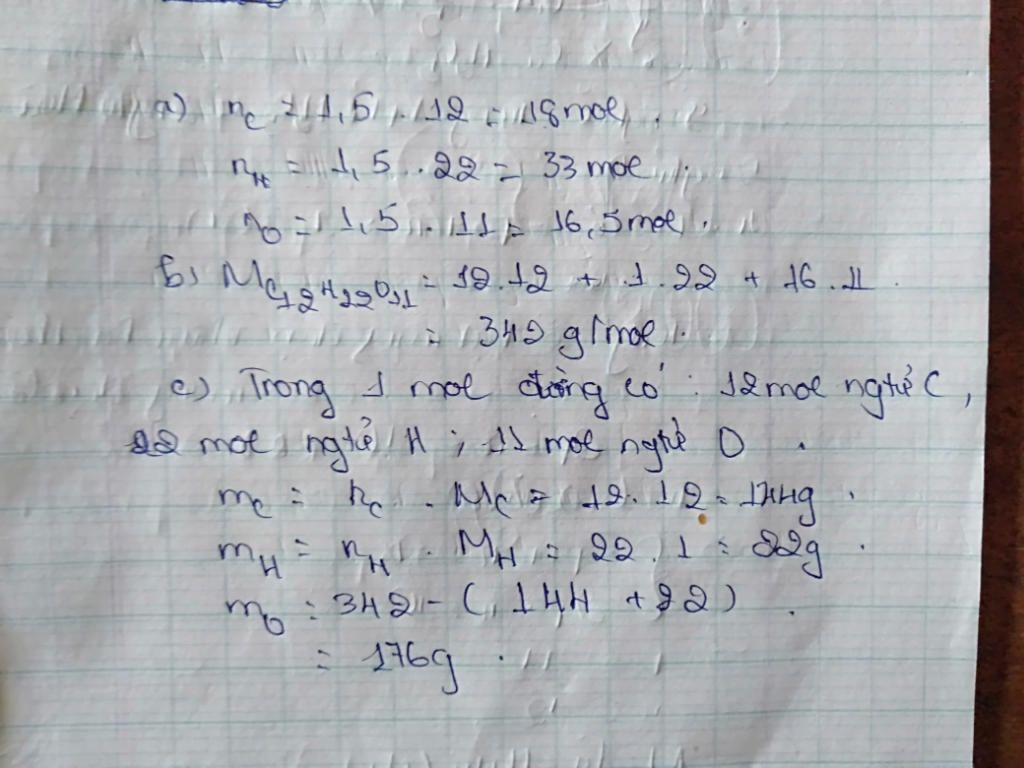 a) nC = 1,5 . 12 = 18 mol .
nH = 1,5 . 22 = 33 mol .
nO = 1,5 . 11 = 16,5 mol .
b) MC12H22O11 = 12.12 + 1.22 + 16.11 .
= 342 g/mol .
c) Trong 1 mol đường có : 12 mol ngtử C ,
22 mol ngtử H ; 11 mol ngtử O .
mC = nC . MC = 12.12 = 144g .
mH = nH . MH = 22.1 = 22g .
mO = 342 - (144 + 22) .
= 176g .